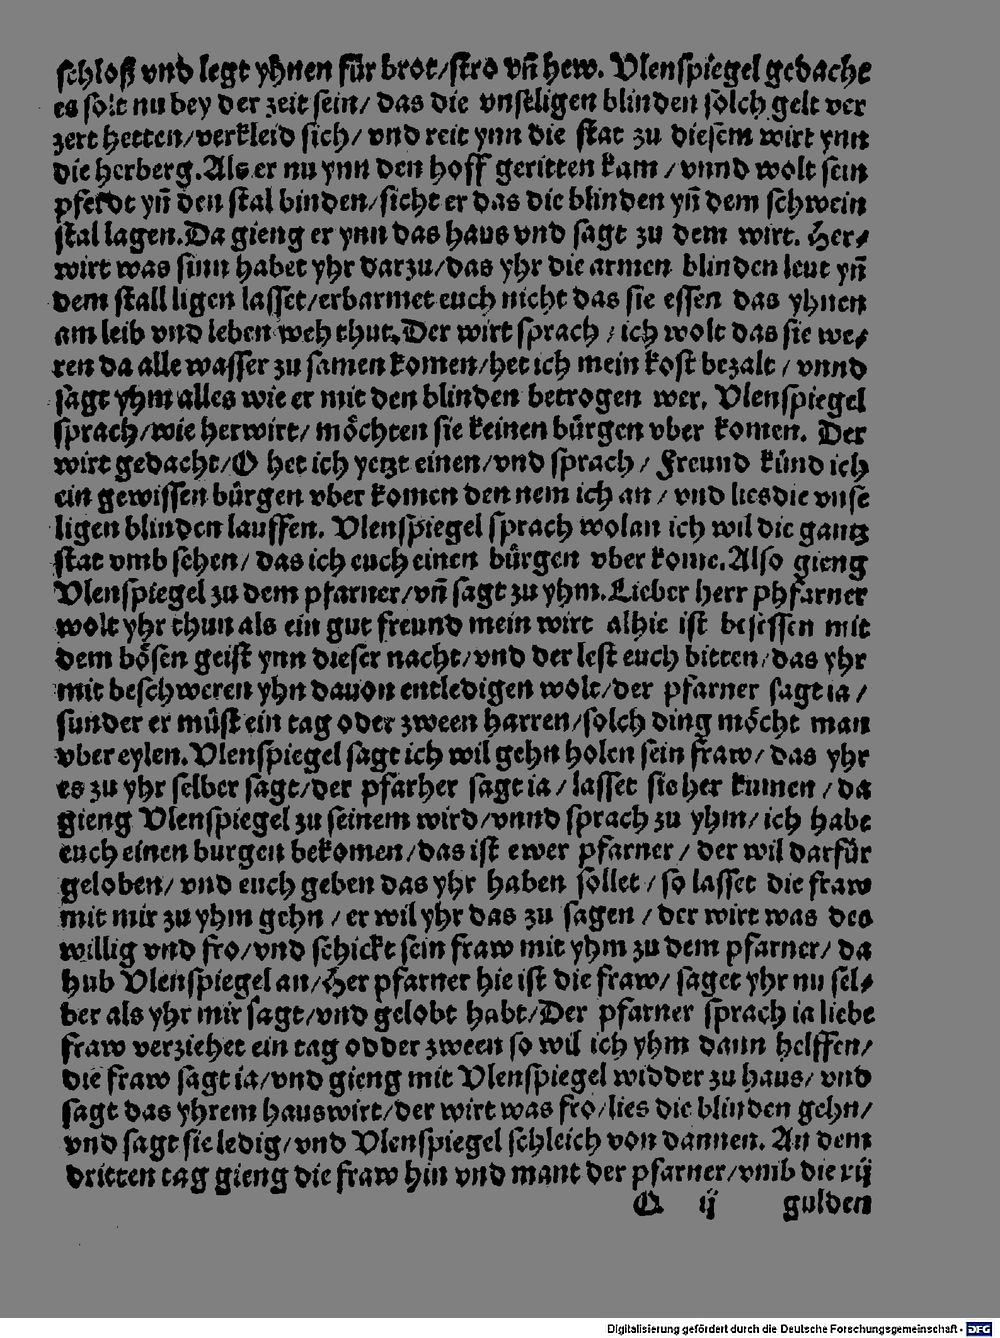 schloß vnd legt yhnen für brot/stro vñ hew. Vlenspiegel gedacht
es solt nu bey der zeit sein/ das die vnseligen blinden solch gelt ver
zert hetten/verkleid sich/ vnd reit ynn die stat zu diesem wirt ynn
die herberg. Als er nu ynn den hoff geritten kam / vnnd wolt sein
pferdt yñ den stal binden/sicht er das die blinden yñ dem schwein
stal lagen. Da gieng er ynn das haus vnd sagt zu dem wirt. Her⸗
wirt was sinn habet yhr darzu/das yhr die armen blinden leut yñ
dem stall ligen lasset/erbarmet euch nicht das sie essen das yhnen
am leib vnd leben weh thut. Der wirt sprach / ich wolt das sie we⸗
ren da alle wasser zu samen komen/het ich mein kost bezalt / vnnd
sagt yhm alles wie er mit den blinden betrogen wer. Vlenspiegel
sprach/wie herwirt/ möchten sie keinen bürgen vber komen. Der
wirt gedacht/O het ich yetzt einen/vnd sprach / Freund künd ich
ein gewissen bürgen vber komen den nem ich an / vnd lies die vnse
ligen blinden lauffen. Vlenspiegel sprach wolan ich wil die gantz
stat vmb sehen/ das ich euch einen bürgen vber kome. Also gieng
Vlenspiegel zu dem pfarner/vñ sagt zu yhm. Lieber herr phfarner
wolt yhr thun als ein gut freund mein wirt alhie ist besessen mit
dem bösen geist ynn dieser nacht/vnd der lest euch bitten/das yhr
mit beschweren yhn dauon entledigen wolt/der pfarner sagt ia /
sunder er müst ein tag oder zween harren/solch ding möcht man
vber eylen. Vlenspiegel sagt ich wil gehn holen sein fraw/ das yhr
es zu yhr selber sagt/der pfarher sagt ia / lasset sie her kumen / da
gieng Vlenspiegel zu seinem wird/vnnd sprach zu yhm/ ich habe
euch einen burgen bekomen/das ist ewer pfarner / der wil darfür
geloben/ vnd euch geben das yhr haben sollet / so lasset die fraw
mit mir zu yhm gehn / er wil yhr das zu sagen / der wirt was des
willig vnd fro/vnd schickt sein fraw mit yhm zu dem pfarner/ da
hub Vlenspiegel an/Her pfarner hie ist die fraw/ saget yhr nu sel⸗
ber als yhr mir sagt/vnd gelobt habt/Der pfarner sprach ia liebe
fraw verziehet ein tag odder zween so wil ich yhm dann helffen/
die fraw sagt ia/vnd gieng mit Vlenspiegel widder zu haus/ vnd
sagt das yhrem hauswirt/der wirt was fro/lies die blinden gehn/
vnd sagt sie ledig/vnd Vlenspiegel schleich von dannen. An dem
dritten tag gieng die fraw hin vnd mant der pfarner/vmb die xij
O ij gulden
Digitalisierung gefördert durch die Deutsche Forschungsgemeinschaft - DFG